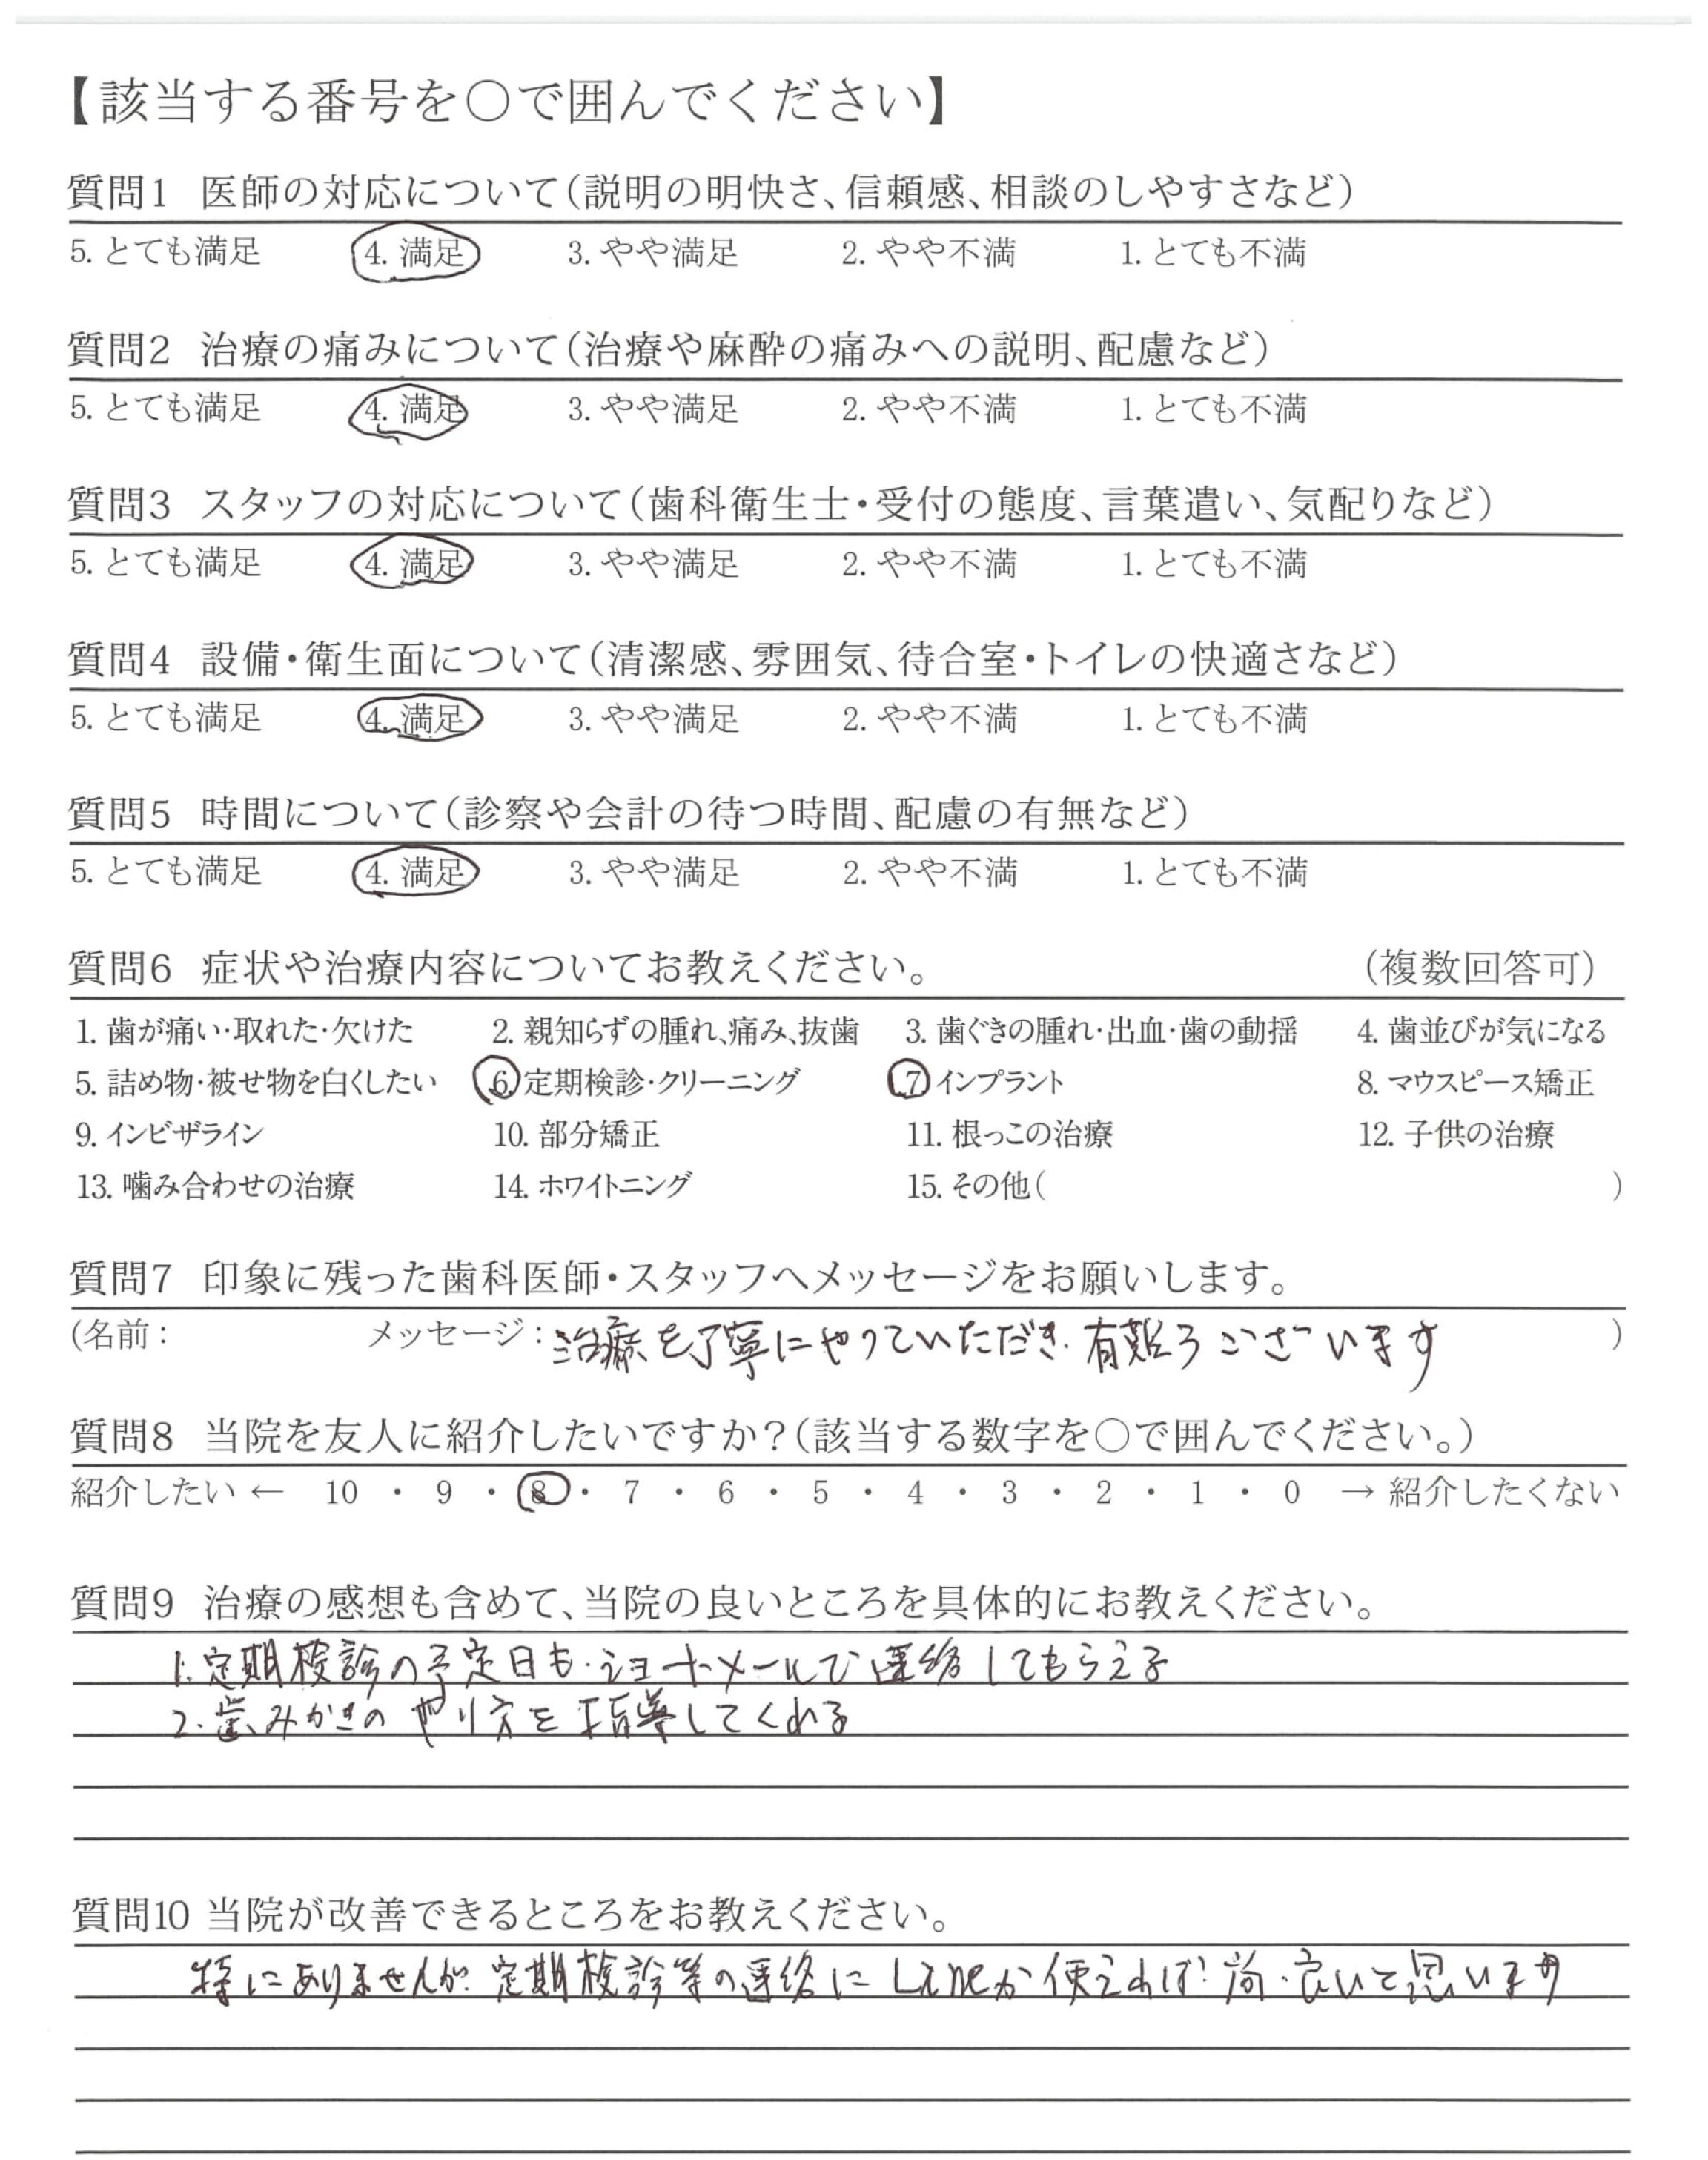 【該当する番号を○で囲んでください】
質問1 医師の対応について(説明の明快さ、信頼感、相談のしやすさなど)
5. とても満足 4. 満足 3. やや満足 2. やや不満 1. とても不満
質問2 治療の痛みについて(治療や麻酔の痛みへの説明、配慮など)
5. とても満足 4. 満足 3. やや満足 2. やや不満 1. とても不満
質問3 スタッフの対応について(歯科衛生士・受付の態度、言葉遣い、気配りなど)
5. とても満足 4. 満足 3. やや満足 2. やや不満 1. とても不満
質問4 設備・衛生面について(清潔感、雰囲気、待合室・トイレの快適さなど)
5. とても満足 4. 満足 3. やや満足 2. やや不満 1. とても不満
質問5 時間について(診察や会計の待つ時間、配慮の有無など)
5. とても満足 4. 満足 3. やや満足 2. やや不満 1. とても不満
質問6 症状や治療内容についてお教えください。 (複数回答可)
1. 歯が痛い・取れた・欠けた 2. 親知らずの腫れ、痛み、抜歯 3. 歯ぐきの腫れ・出血・歯の動揺 4. 歯並びが気になる
5. 詰め物・被せ物を白くしたい 6. 定期検診・クリーニング 7. インプラント 8. マウスピース矯正
9. インビザライン 10. 部分矯正 11. 根っこの治療 12. 子供の治療
13. 噛み合わせの治療 14. ホワイトニング 15. その他( )
質問7 印象に残った歯科医師・スタッフへメッセージをお願いします。
(名前: メッセージ: 治療を丁寧にやっていただき、有難うございます )
質問8 当院を友人に紹介したいですか?(該当する数字を○で囲んでください。)
紹介したい ← 10 ・ 9 ・ 8 ・ 7 ・ 6 ・ 5 ・ 4 ・ 3 ・ 2 ・ 1 ・ 0 → 紹介したくない
質問9 治療の感想も含めて、当院の良いところを具体的にお教えください。
1. 定期検診の予定日も、ショートメールで連絡してもらえる
2. 歯みがきのやり方を指導してくれる
質問10 当院が改善できるところをお教えください。
特にありませんが、定期検診等の連絡にLineが使えれば、尚、良いと思います